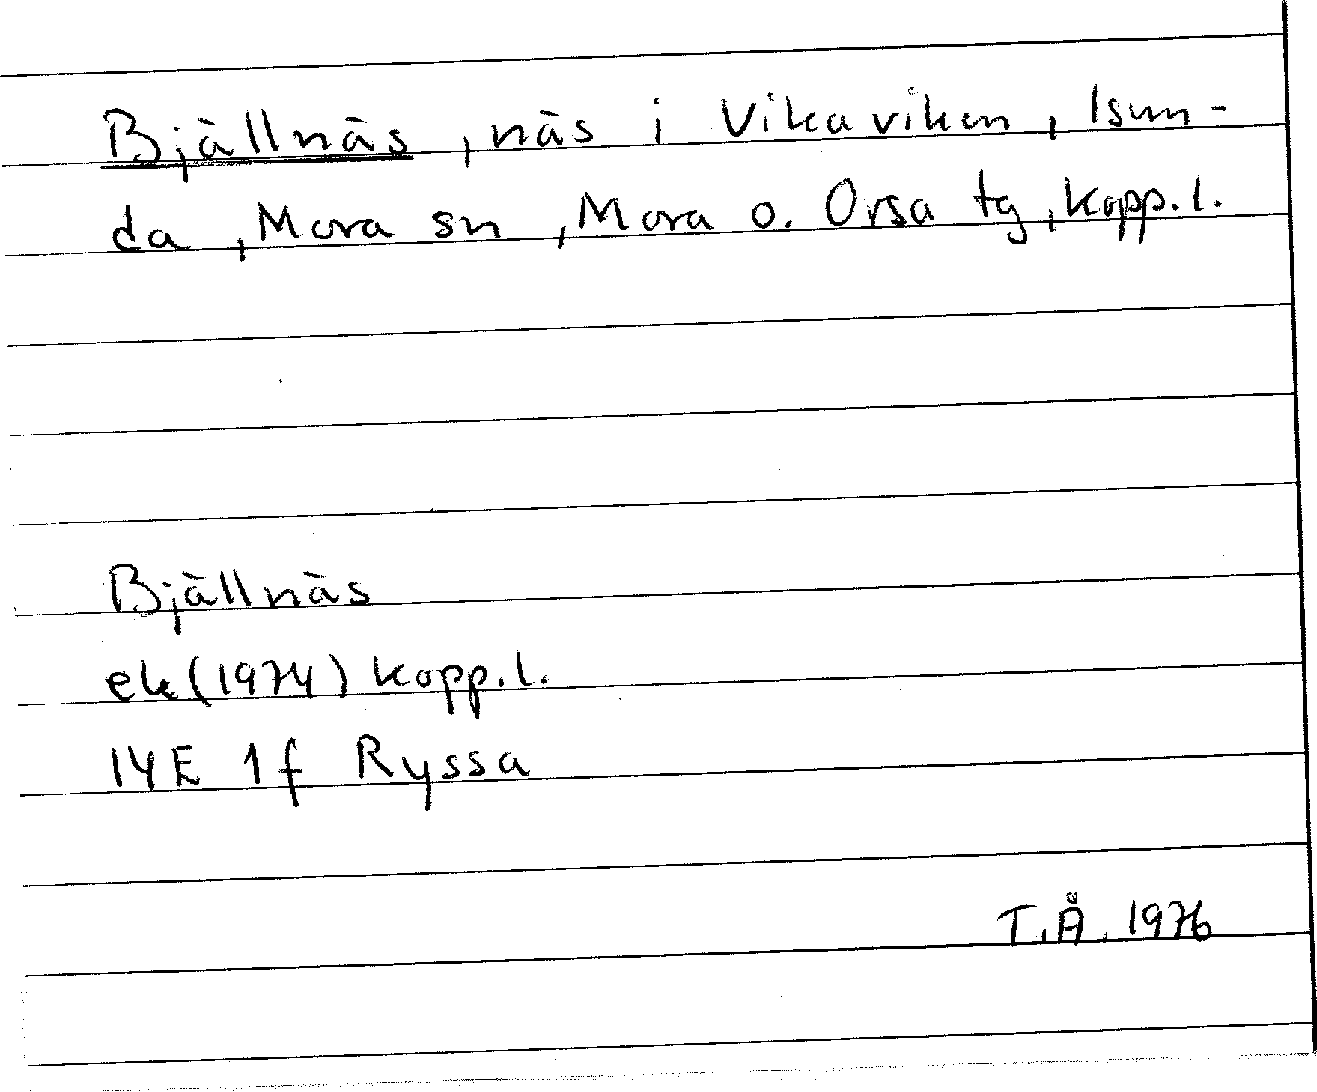 Bjällnäs, näs i Vikaviken, Isun-
da, Mora sn, Mora o. Orsa tg, Kopp. l.
Bjällnäs
ek (1974) Kopp. l.
14E 1f Ryssa
T.Å. 1976